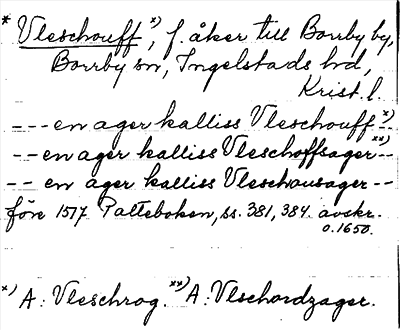 * Vleschouff *), f. åker till Borrby by,
Borrby sn, Ingelstads hd,
Krist. l.
--- en ager kalliss Vleschouff *) --
-- en ager kalliss Vleschoffsager **) --
-- en ager kalliss Vleschausager --
före 1517 Palteboken, ss. 381, 384. avskr.
o.1650.
*) A: Vleschrog. **) A: Vlschordzager.